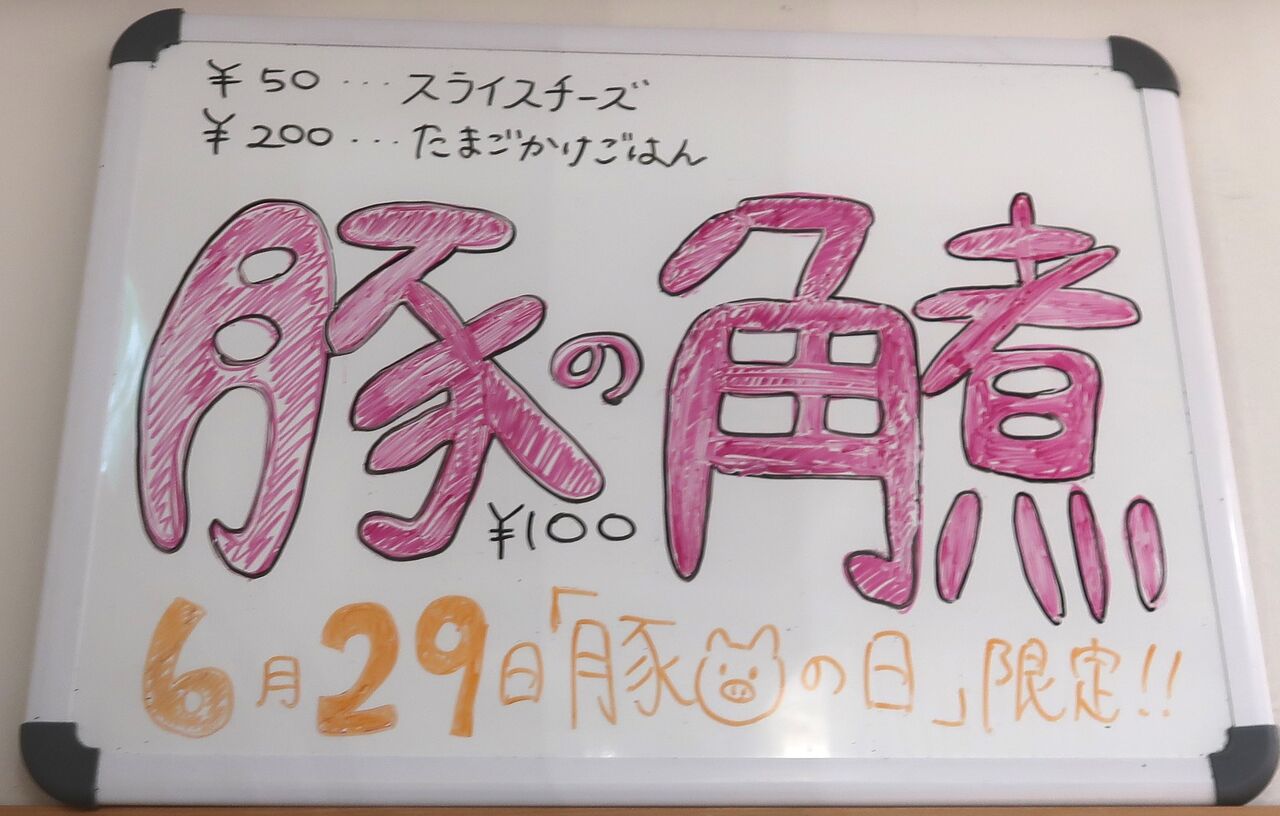 ¥50…スライスチーズ
¥200…たまごかけごはん
豚の角煮
¥100
6月29日「豚の日」限定!!